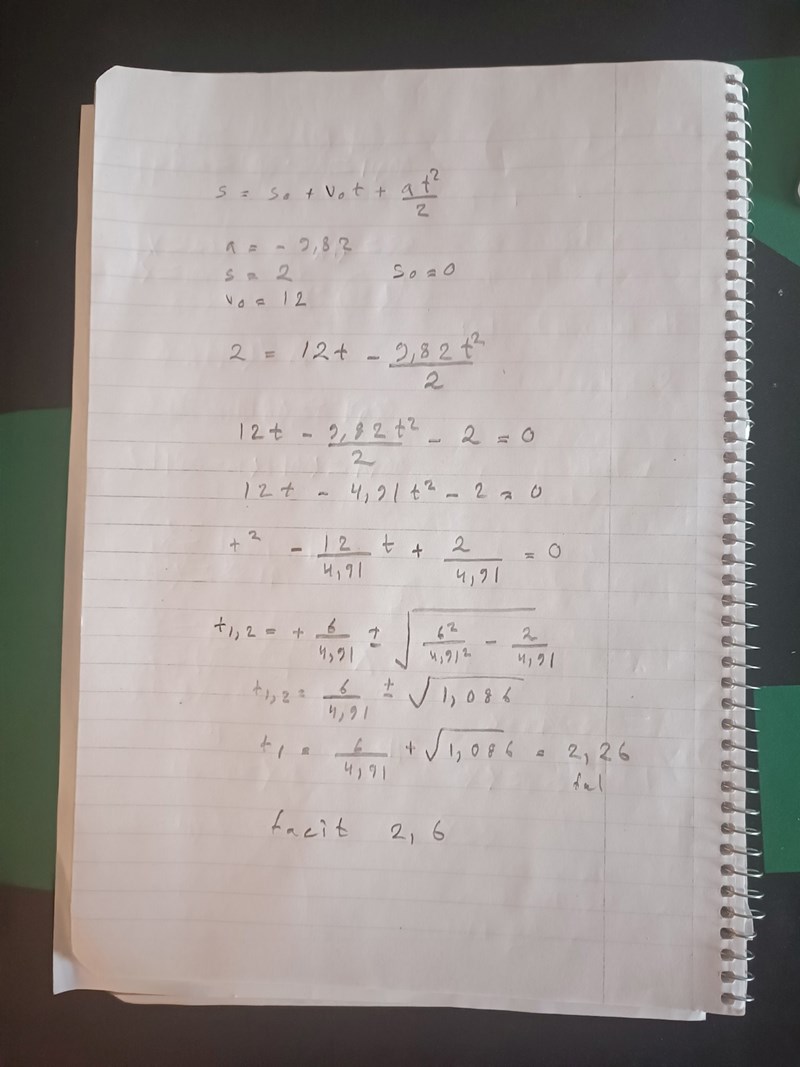 s = s₀ + v₀t + at²/2
a = - 9,82
s = 2 s₀ = 0
v₀ = 12
2 = 12t - 9,82t²/2
12t - 9,82t²/2 - 2 = 0
12t - 4,91t² - 2 = 0
t² - 12/4,91 t + 2/4,91 = 0
t₁,₂ = + 6/4,91 ± √(6²/4,91² - 2/4,91)
t₁,₂ = 6/4,91 ± √1,086
t₁ = 6/4,91 + √1,086 = 2,26
fel
facit 2,6